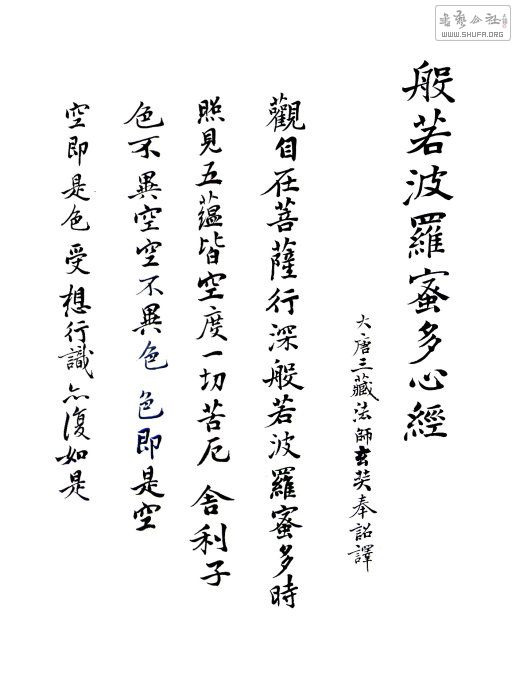 般若波羅蜜多心經
大唐三藏法師玄奘奉詔譯
觀自在菩薩行深般若波羅蜜多時
照見五蘊皆空度一切苦厄舍利子
色不異空空不異色色即是空
空即是色受想行識亦復如是
書藝公社
WWW.SHUFA.ORG